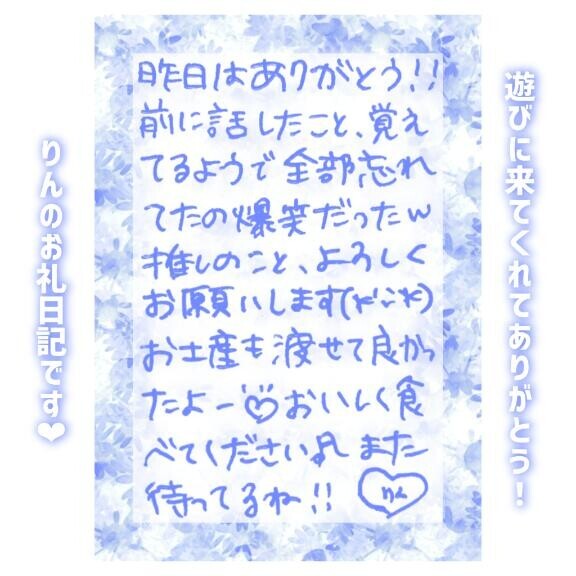 遊びに来てくれてありがとう!
昨日はありがとう!!
前に話したこと、覚え
てるようで全部忘れ
てたの爆笑だったw
推しのこと、よろしく
お願いします(*^^*)
お土産も渡せて良かっ
たよー♡おいしく食
べてください♪ また
待ってるね!! りん
りんのお礼日記です❤